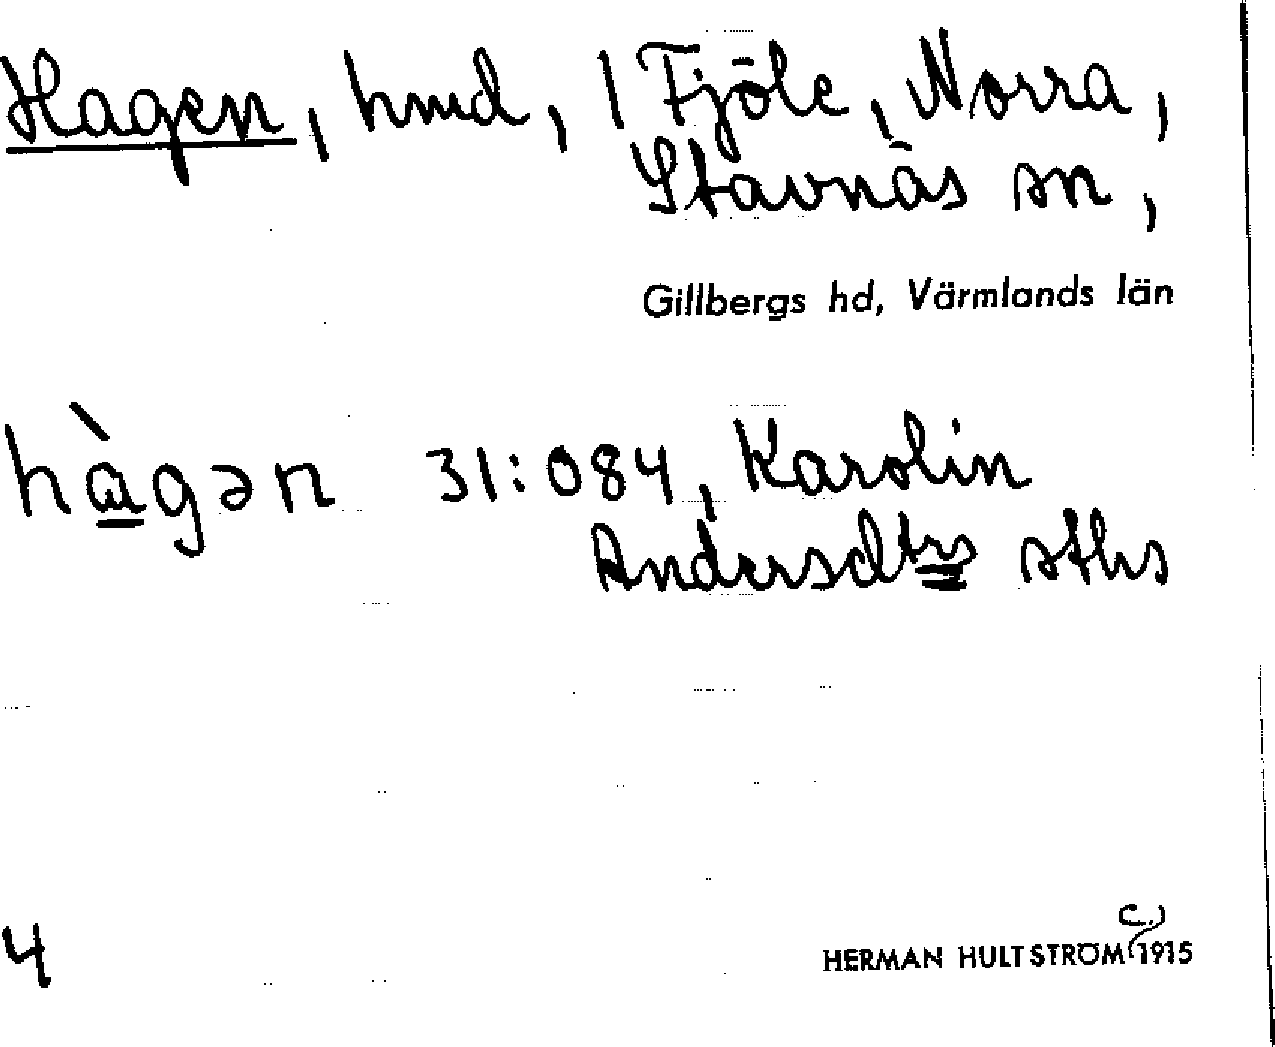 Hagen, hmd, 1 Fjöle, Norra,
Stavnäs sn,
Gillbergs hd, Värmlands län
hàgən 31:084, Karolin
Andersdtrs sths
4
c.)
HERMAN HULTSTRÖM 1915